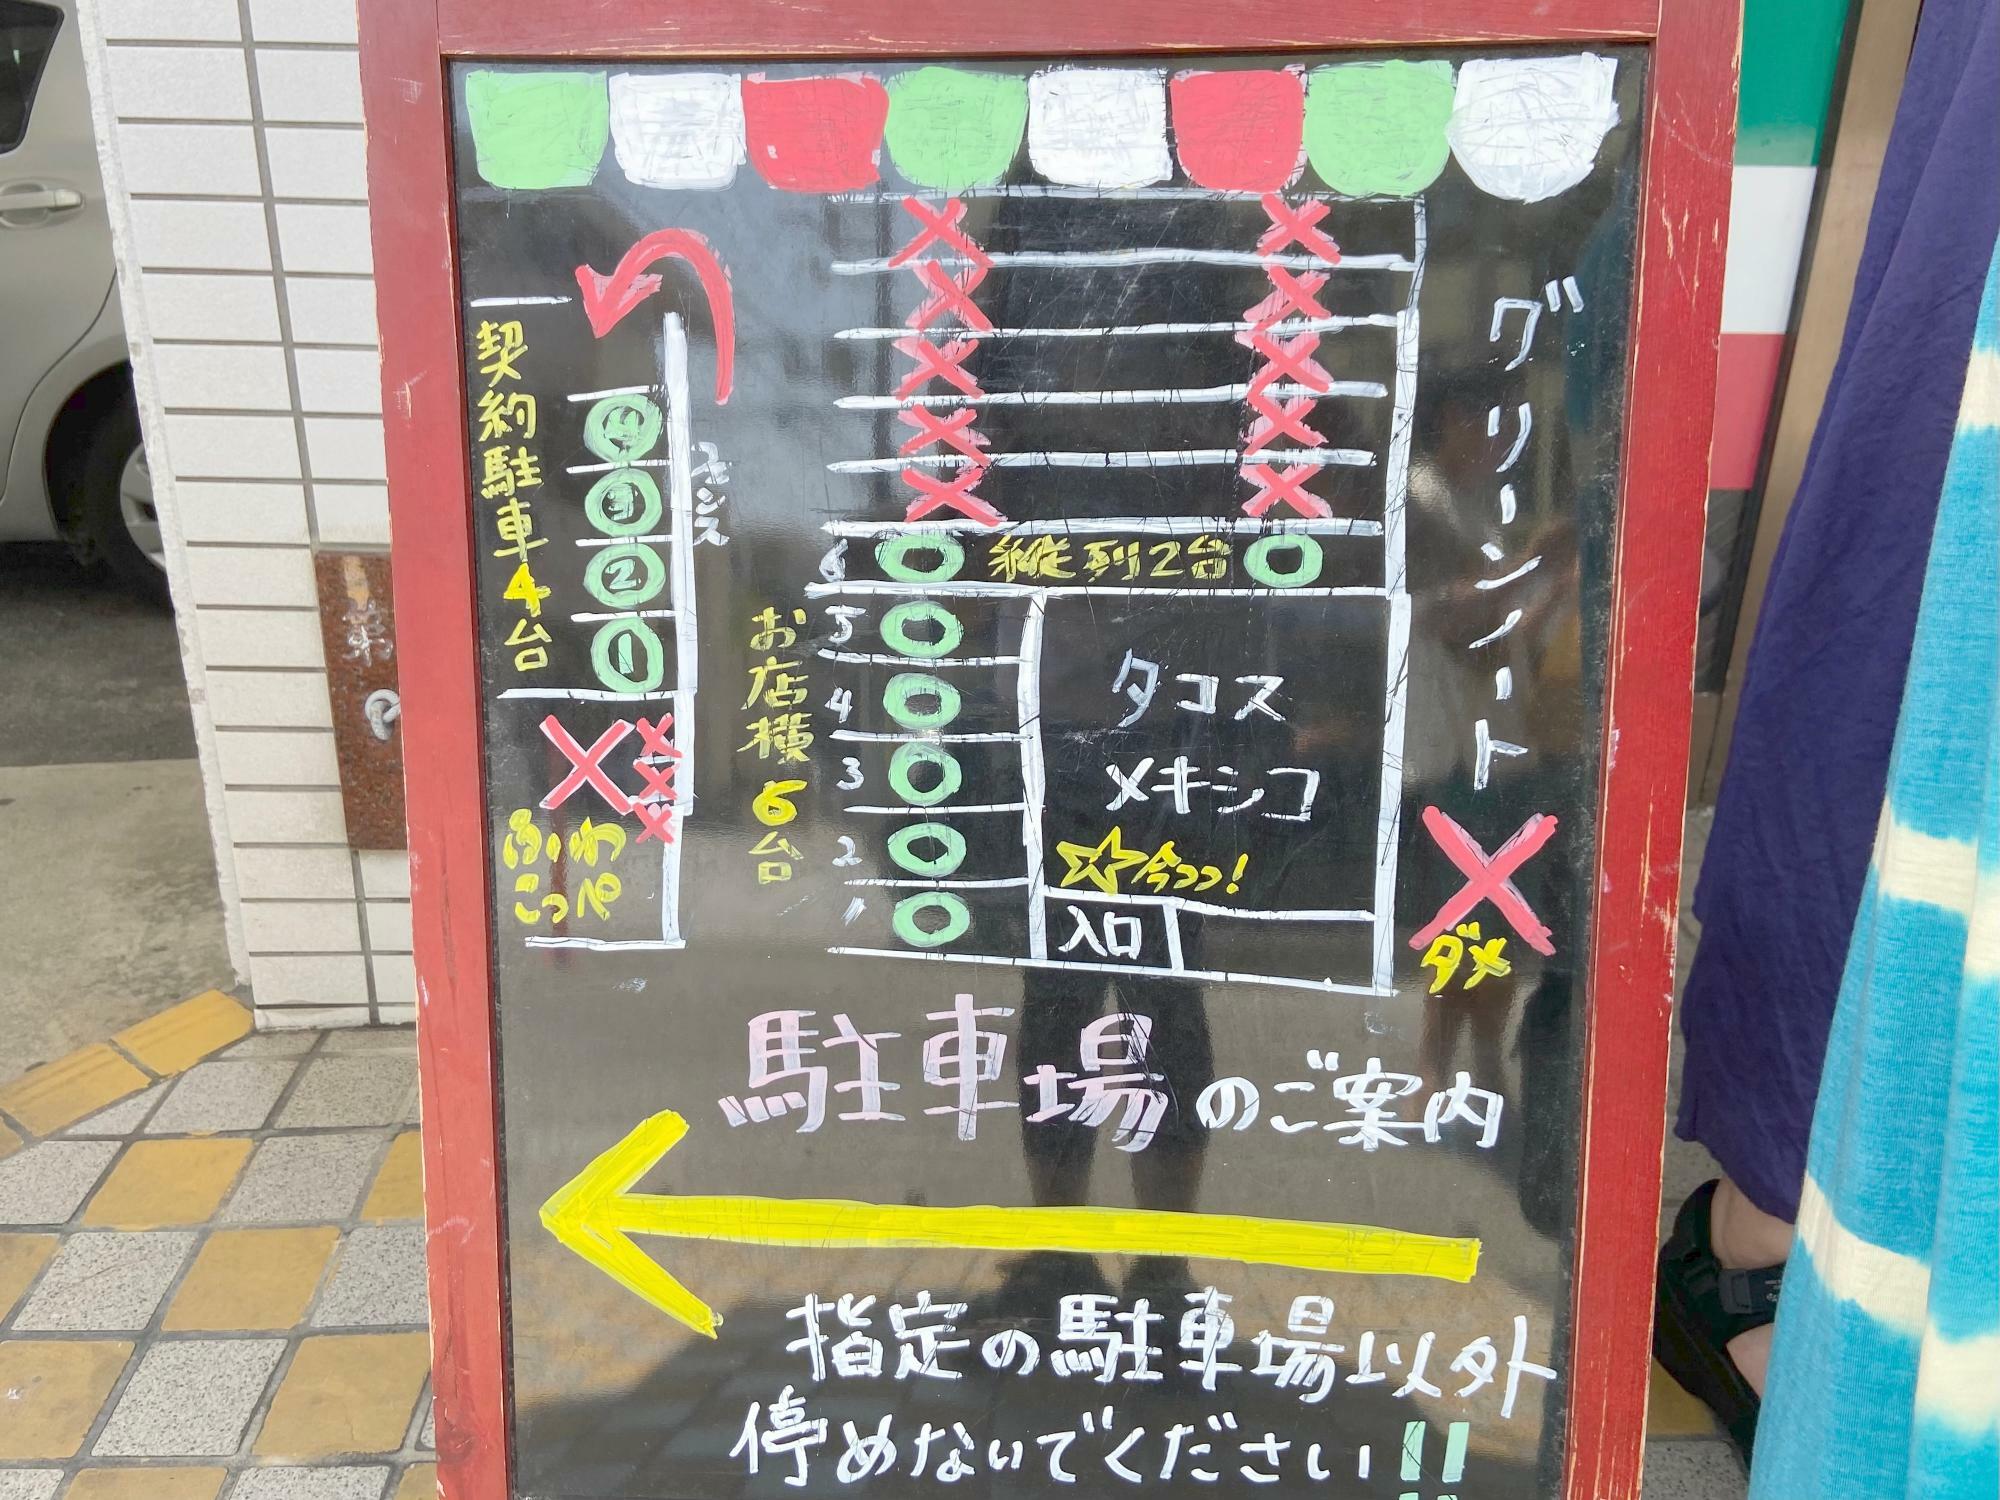 契約駐車4台
4
3
2
1
フェンス
ふわ
こっぺ
お店横6台
6
縦列2台
5
4
3
2
1
タコス
メキシコ
☆今ココ!
入口
グリーンノート
ダメ
駐車場のご案内
指定の駐車場以外
停めないでください!!